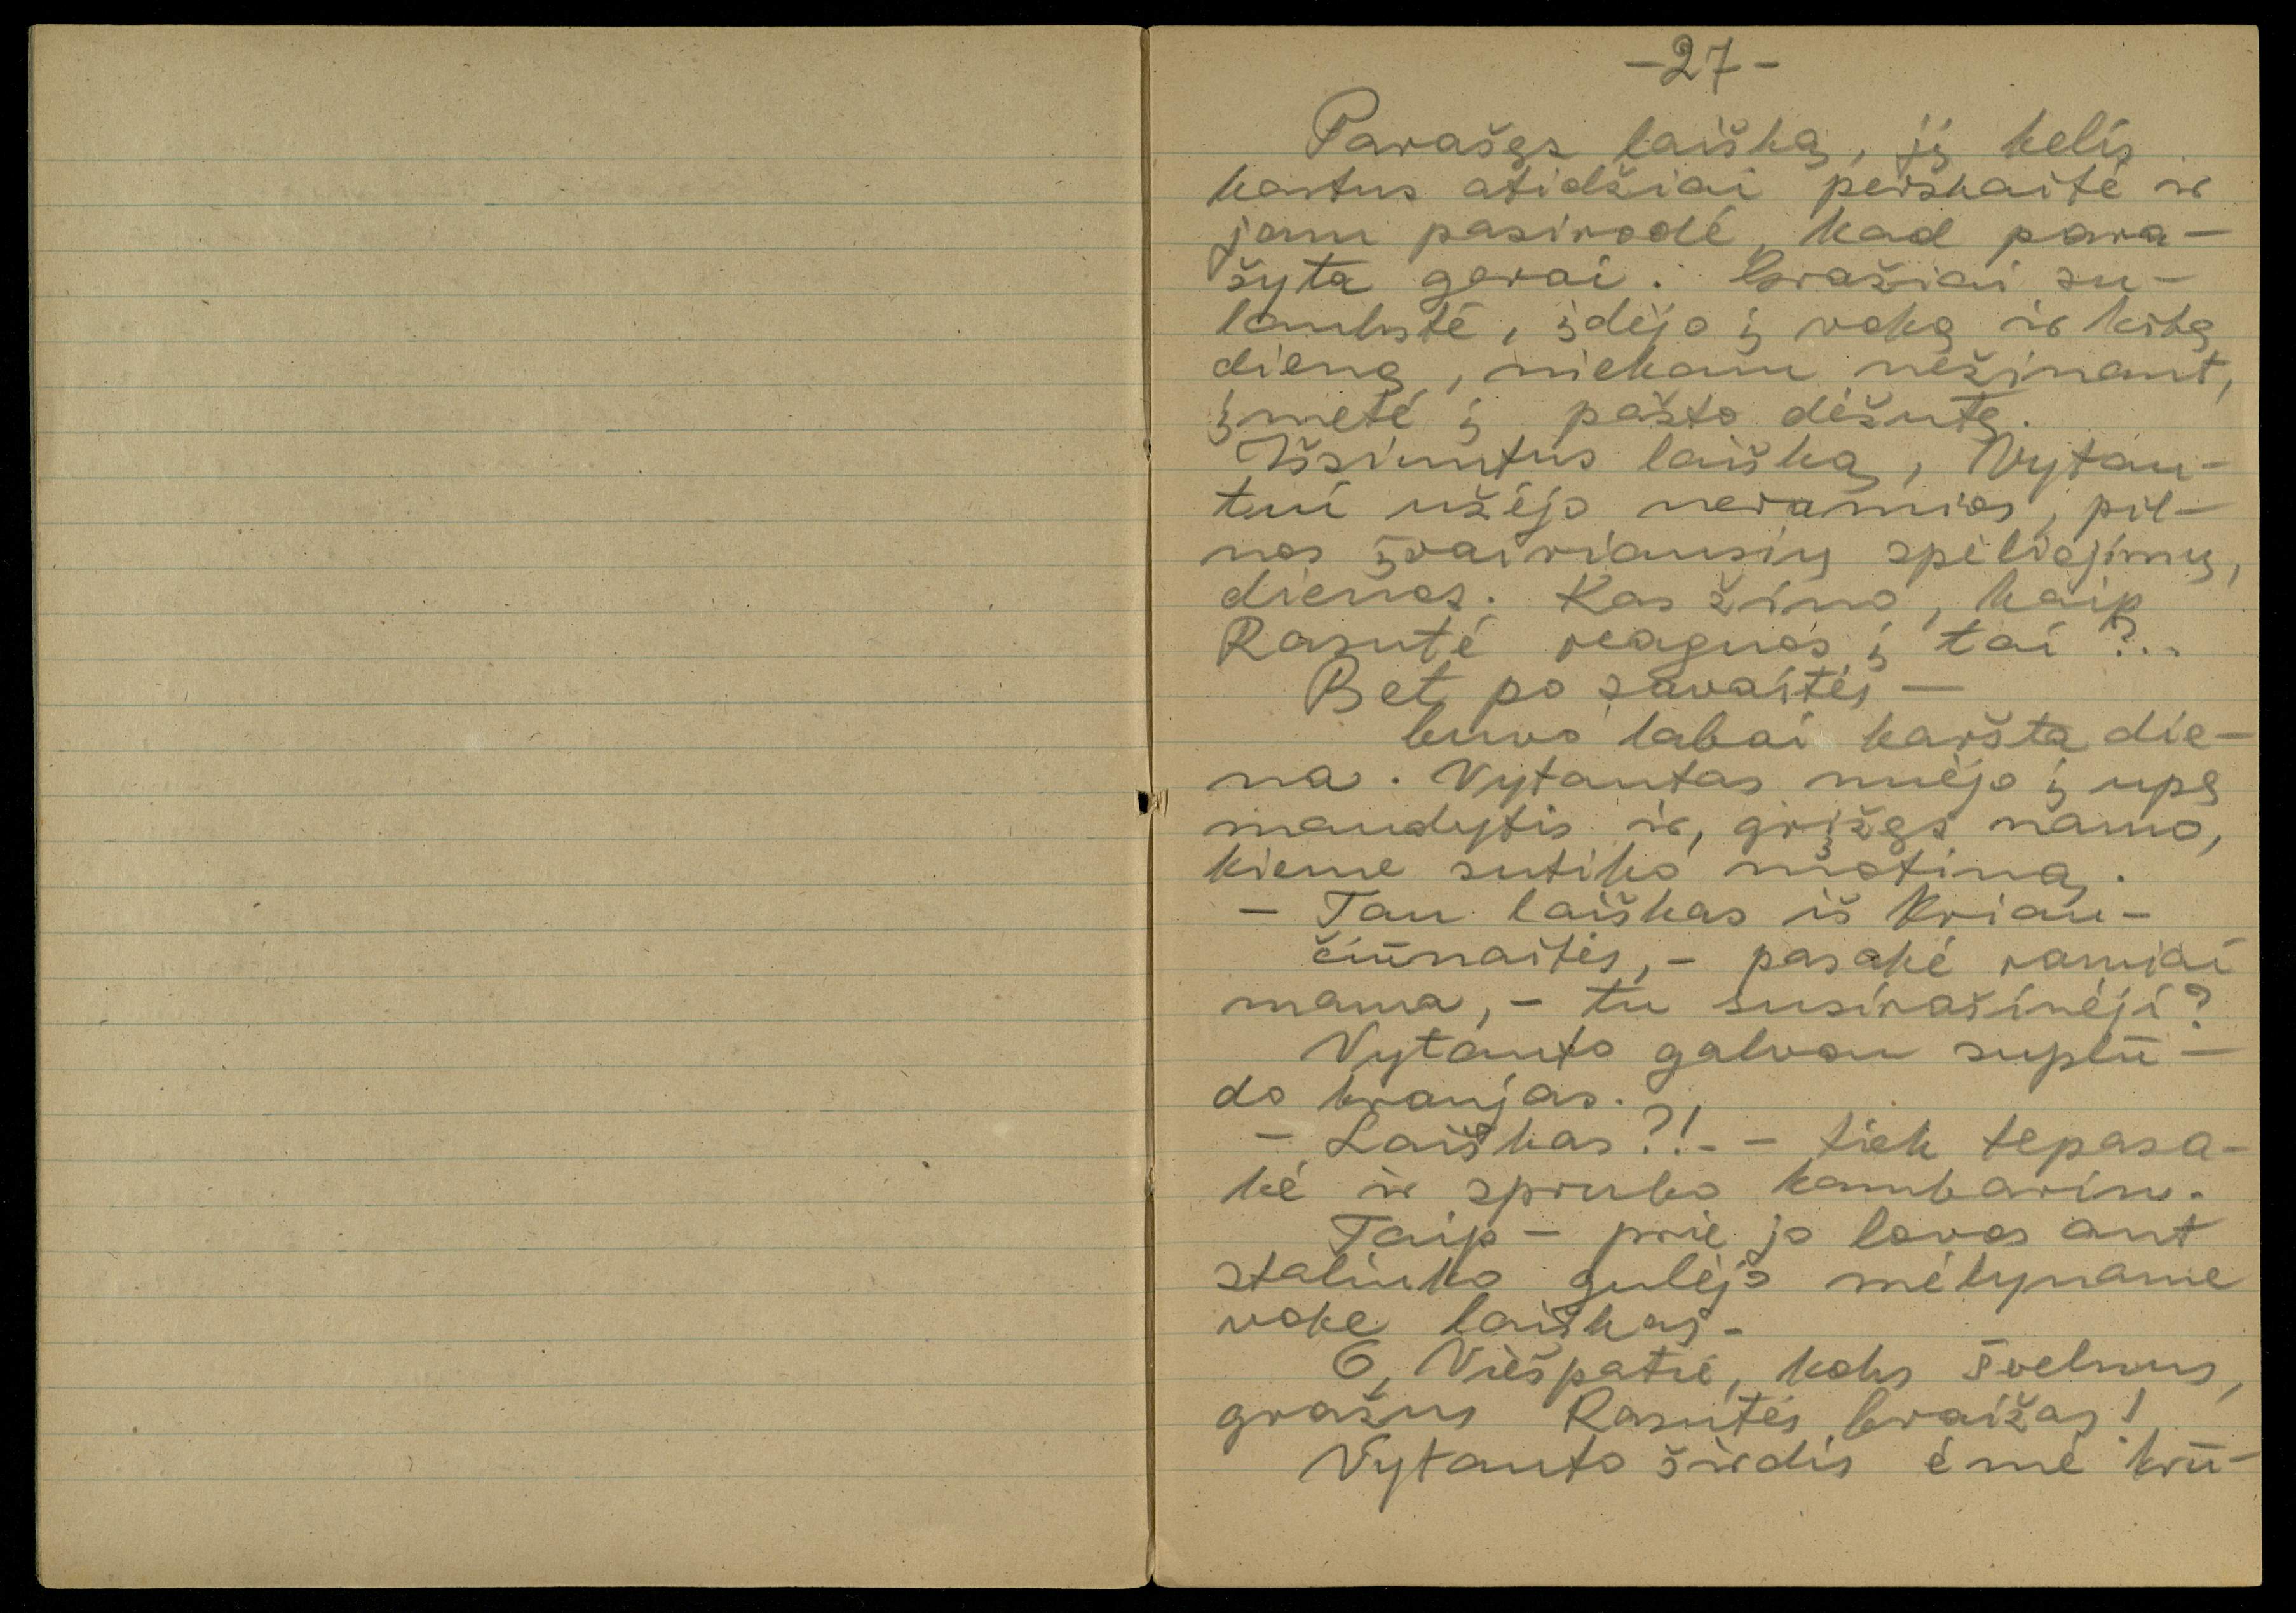 -27-
Parašęs laišką, jį kelis
kartus atidžiai perskaitė ir
jam pasirodė, kad para-
šyta gerai. Gražiai su-
lankstė, įdėjo į voką ir kitą
dieną, niekam nežinant,
įmetė į pašto dėžutę.
Išsiuntus laišką, Vytau-
tui užėjo neramios, pil-
nos įvairiausių spėliojimų,
dienos. Kas žino, kaip
Rasutė reaguos į tai?..
Bet po savaitės —
buvo labai karšta die-
na. Vytautas nuėjo į upę
maudytis ir, grįžęs namo,
kieme sutiko motiną.
- Tau laiškas iš Kriau-
čiūnaitės, - pasakė ramiai
mama, - tu susirašinėji?
Vytauto galvon suplū-
do kraujas.
- Laiškas?!. - tiek tepasa-
kė ir spruko kambarin.
Taip - prie jo lovos ant
staliuko gulėjo mėlyname
voke laiškas.
O, Viešpatie, koks švelnus,
gražus Rasutės braižas!
Vytauto širdis ėmė krū-